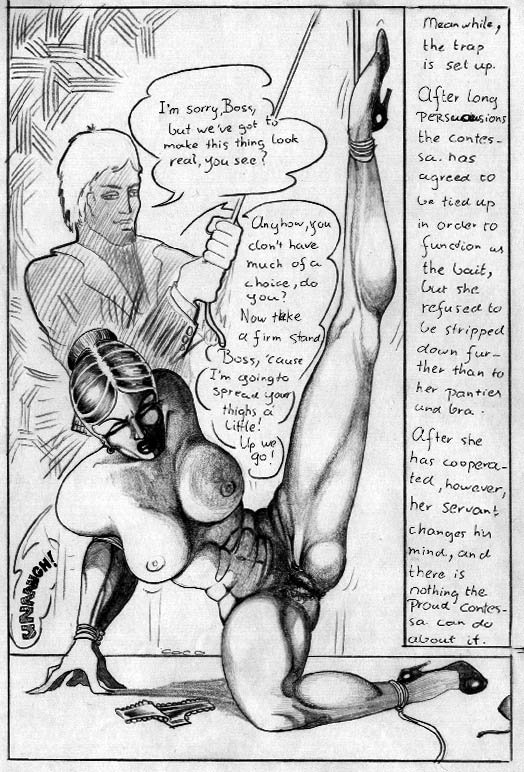 I'm sorry, Boss,
but we've got to
make this thing look
real, you see?
Anyhow, you
don't have
much of a
choice, do
you?
Now take
a firm stand
Boss, 'cause
I'm going to
spread your
thighs a
little!
Up we
go!
UNAAAUGH!
COCO
Meanwhile,
the trap
is set up.
After long
persuasions
the contes-
sa. has
agreed to
be tied up
in order to
function as
the bait,
but she
refused to
be stripped
down fur-
ther than to
her panties
and bra.
After she
has coopera-
ted, however,
her servant
changes his
mind, and
there is
nothing the
Proud Contes-
sa can do
about it.